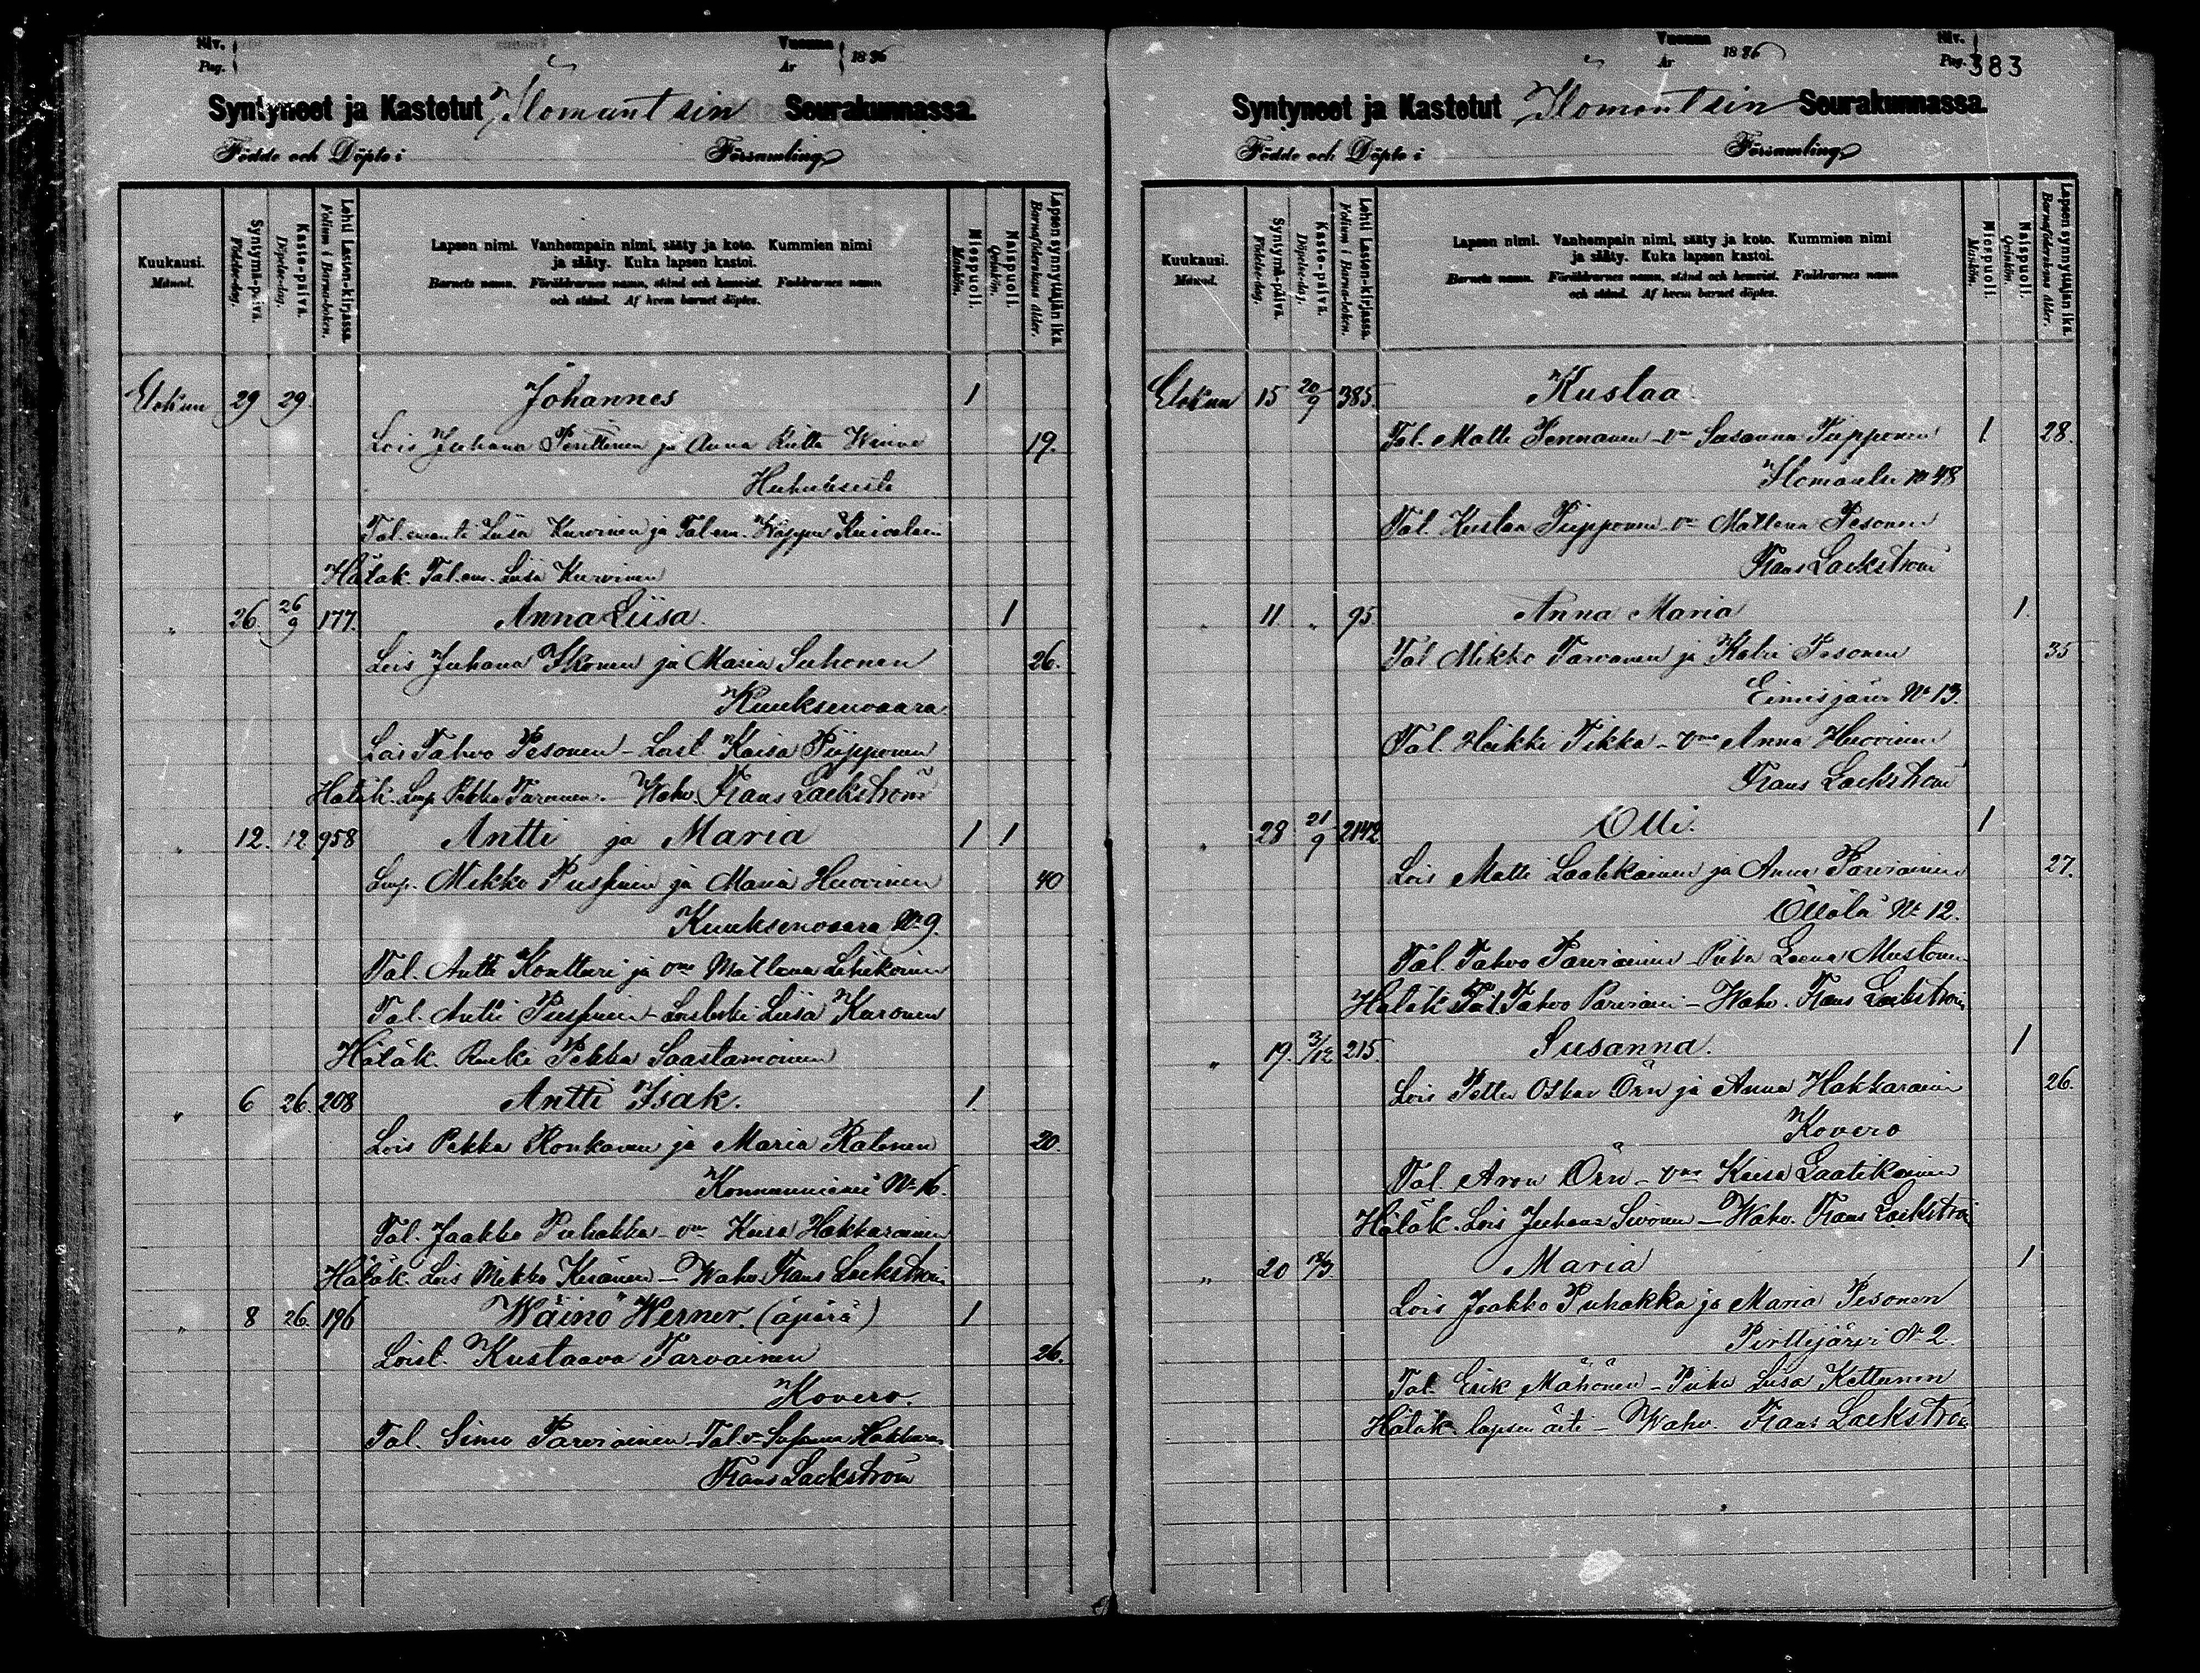 Siv.
Pag.
Vuonna
År
1886
Syntyneet ja Kastetut Ilomantsin Seurakunnassa.
Födde och Döpte i Församling
Kuukausi.
Månad.
Syntymä-päivä.
Födelse-dag.
Kaste-päivä.
Döpelse-dag.
Lehti Lasten-kirjassa.
Folium i Barna-boken.
Lapsen nimi. Vanhempain nimi, sääty ja koto. Kummien nimi
ja sääty. Kuka lapsen kastoi.
Barnets namn. Föräldrarnes namn, stånd och hemvist. Faddrarnes namn
och stånd. Af hvem barnet döptes.
Miespuoli.
Mankön.
Naispuoli.
Qvinkön.
Lapsen synnyttäjän ikä.
Barnaföderskans ålder.
Elokuu 29 29. Johannes 1
Lois Juhana Penttinen ja Anna Riitta 19.
Tal. emäntä Liisa Kurvinen ja Tal. em.
Hätäk. Tal. em. Liisa Kurvinen
„ 26. 26/9 177. Anna Liisa. 1
Lois Juhana Ikonen ja Maria Suhonen 26.
Kuuksenvaara
Lois Tahvo Pesonen - Loist. Kaisa Piipponen
Hätäk. Lmp. Pekka Turunen. Wahv. Frans Lackström
„ 12. 12 958 Antti ja Maria 1 1
Lmp. Mikko Puspunen ja Maria Huovinen 40
Kuuksenvaara No 9.
Tal. Antti Kontturi ja vmo Matleena Lehikoinen
Tal. Antti Puspunen - Liisa Kuronen
Hätäk. Renki Pekka Saastamoinen
„ 6 26. 208 Antti Isak. 1.
Lois Pekka Ronkanen ja Maria Ratonen 20.
Konnanniemi No 16.
Tal. Jaakko Puhakka - vmo Kaisa Hakkarainen
Hätäk. Lois Mikko Keränen - Wahv. Frans Lackström
„ 8 26. 196 Wäinö Werner. (äpärä) 1
Loist. Kustaava Tarvainen 26.
Kovero.
Tal. Simo Parviainen - Tal. v. Susanna Hakkara
Frans Lackström
Vuonna
År
1886
Siv.
Pag. 383
Syntyneet ja Kastetut Ilomantsin Seurakunnassa.
Födde och Döpte i Församling
Kuukausi.
Månad.
Syntymä-päivä.
Födelse-dag.
Kaste-päivä.
Döpelse-dag.
Lehti Lasten-kirjassa.
Folium i Barna-boken.
Lapsen nimi. Vanhempain nimi, sääty ja koto. Kummien nimi
ja sääty. Kuka lapsen kastoi.
Barnets namn. Föräldrarnes namn, stånd och hemvist. Faddrarnes namn
och stånd. Af hvem barnet döptes.
Miespuoli.
Mankön.
Naispuoli.
Qvinkön.
Lapsen synnyttäjän ikä.
Barnaföderskans ålder.
Elokuu 15 20/9 385. Kustaa.
Tal. Matti Pennanen - vmo Susanna Piipponen 1. 28.
No 48
Tal. Kustaa Piipponen - vmo Matleena Pesonen
Frans Lackström
„ 11 „ 95 Anna Maria 1.
Tal. Mikko Tarvanen ja Katri Pesonen 35
Eimisjärvi No 13.
Tal. Heikki Tikka - vmo Anna Huovinen
Frans Lackström
„ 28 21/9 2142 Olli. 1
Lois Matti Laatikainen ja Anna Parviainen 27.
Öllölä No 12.
Tal. Tahvo Parviainen - Piika Leena Mustonen
Hätäk. Tal. Tahvo Parviain - Wahv. Frans Lackström
„ 19. 3/12 215 Susanna. 1
Lois Petter Oskar Örn ja Anna Hakkarain 26.
Kovero
Tal. Aron Örn - vmo Kaisa Laatikainen
Hätäk. Lois Juhana Sivonen - Wahv. Frans Lackström
„ 20 18/3. Maria 1
Lois Jaakko Puhakka ja Maria Pesonen
Pirttijärvi No 2.
Tal. Erik Mähönen - Piika Liisa Kettunen
Hätäk. lapsen äiti - Wahv. Frans Lackström